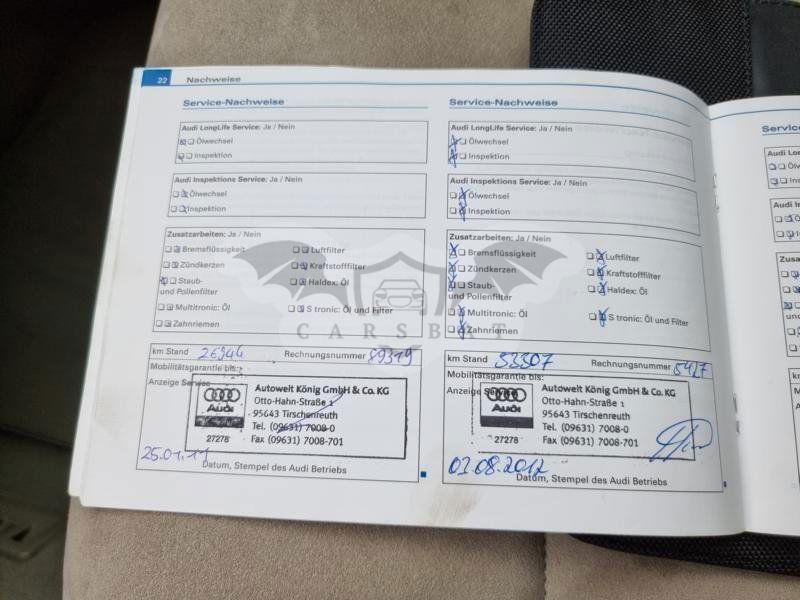 22 Nachweise
Service-Nachweise
Audi LongLife Service: Ja / Nein
Ölwechsel
Inspektion
Audi Inspektions Service: Ja / Nein
Ölwechsel
Inspektion
Zusatzarbeiten: Ja / Nein
Bremsflüssigkeit Luftfilter
Zündkerzen Kraftstofffilter
Staub- Haldex: Öl
und Pollenfilter
Multitronic: Öl S tronic: Öl und Filter
Zahnriemen
km Stand 26944 Rechnungsnummer 89319
Mobilitätsgarantie bis:
Anzeige Service
Autowelt König GmbH & Co. KG
Otto-Hahn-Straße 1
95643 Tirschenreuth
Tel. (09631) 7008-0
Fax (09631) 7008-701
Audi
27278
25.01.11
Datum, Stempel des Audi Betriebs
Service-Nachweise
Audi LongLife Service: Ja / Nein
Ölwechsel
Inspektion
Audi Inspektions Service: Ja / Nein
Ölwechsel
Inspektion
Zusatzarbeiten: Ja / Nein
Bremsflüssigkeit Luftfilter
Zündkerzen Kraftstofffilter
Staub- Haldex: Öl
und Pollenfilter
Multitronic: Öl S tronic: Öl und Filter
Zahnriemen
km Stand 53307 Rechnungsnummer 5427
Mobilitätsgarantie bis:
Anzeige Service
Autowelt König GmbH & Co. KG
Otto-Hahn-Straße 1
95643 Tirschenreuth
Tel. (09631) 7008-0
Fax (09631) 7008-701
Audi
27278
01.08.2012
Datum, Stempel des Audi Betriebs
CARSBAT